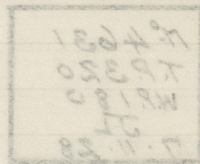 Nº 4631
T.P 320
W.P 180
JL
7.11.28